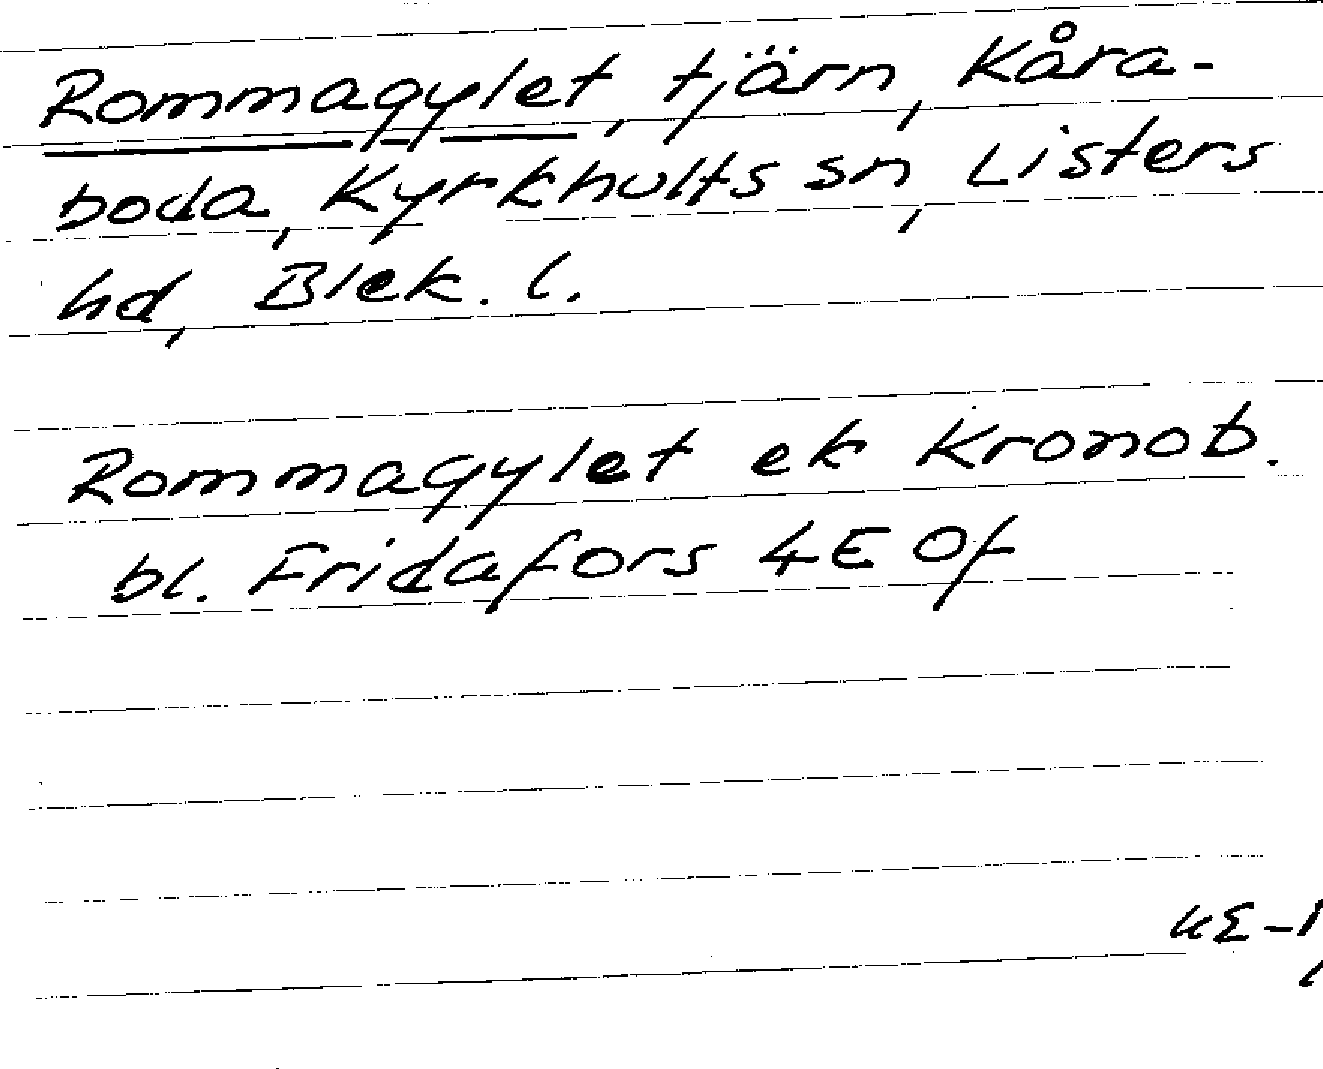 Rommagylet, tjärn, Kåra-
boda, Kyrkhults sn, Listers
hd, Blek. l.
Rommagylet ek Kronob.
bl. Fridafors 4E Of